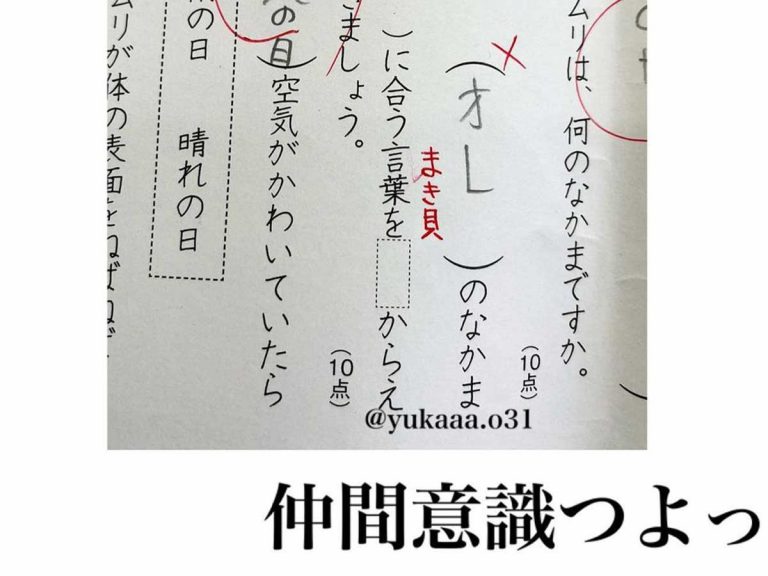 ムリは、何のなかまですか。
(10点)
(オレ)のなかま
まき貝
)に合う言葉を からえ
ましょう。
(10点)
の日)空気がかわいていたら
の日 晴れの日
ムリが体の表面を
@yukaaa.o31
仲間意識つよっ